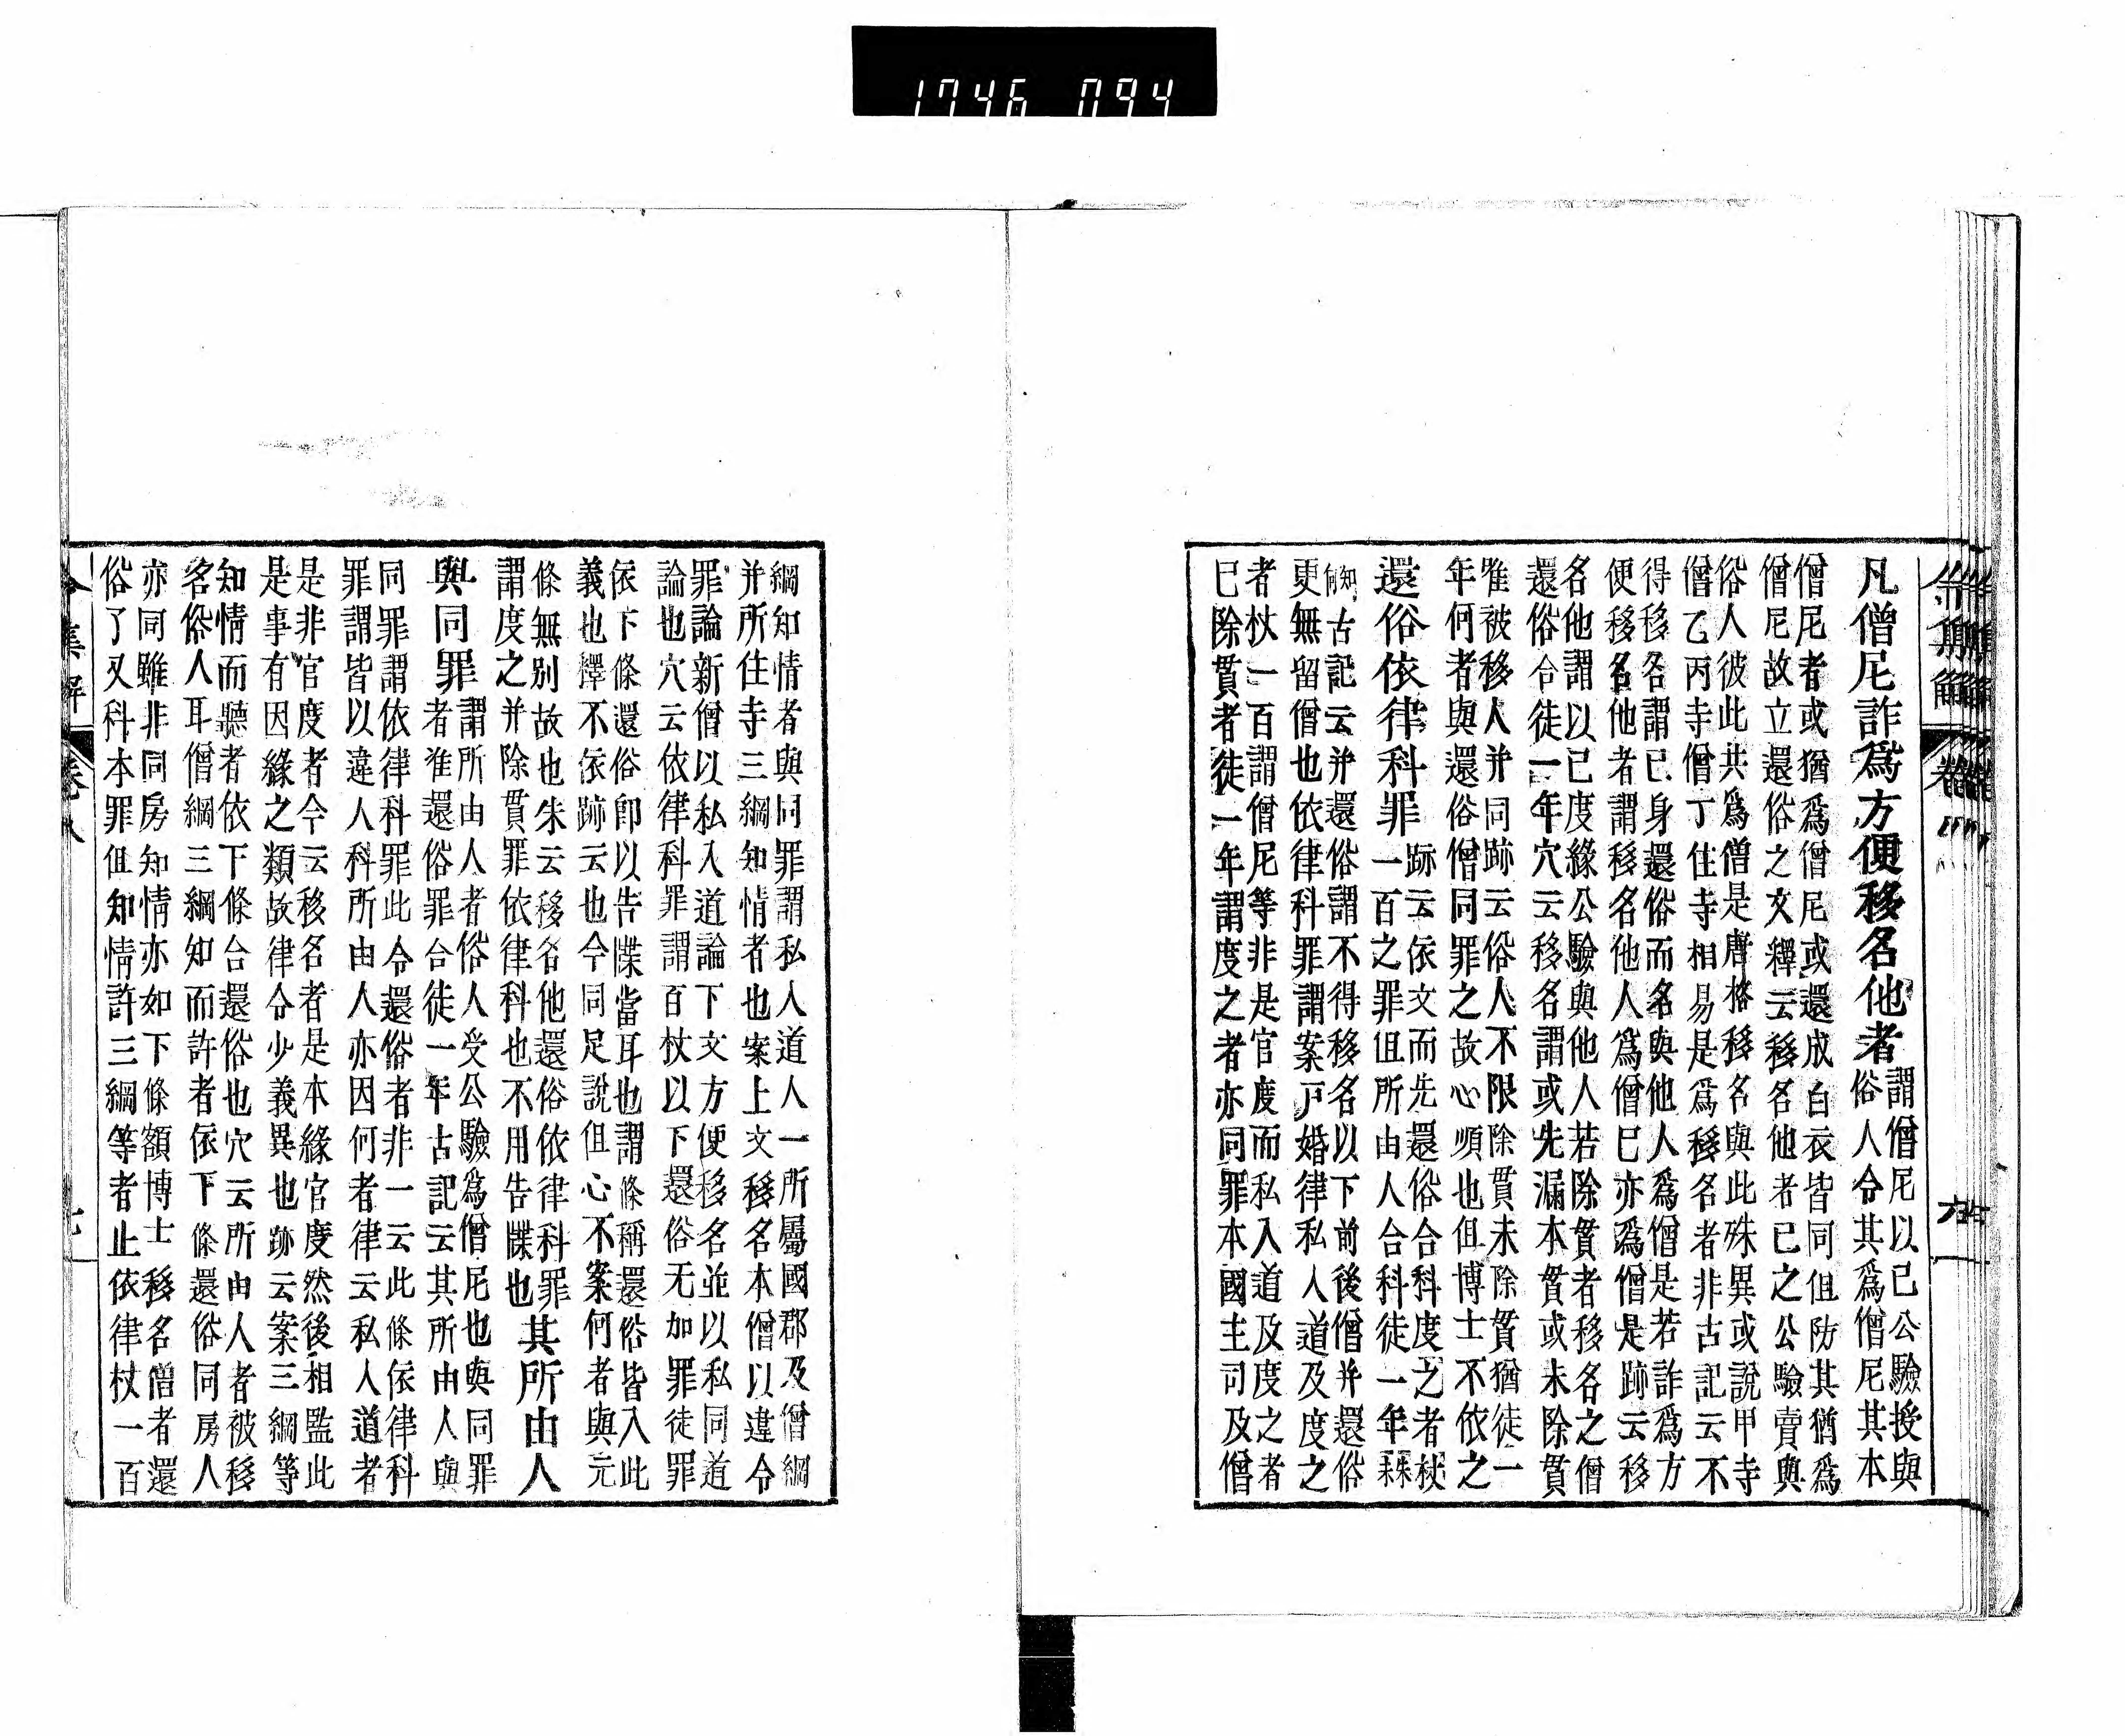 1746 094
令集解 卷八
凡僧尼詐爲方便移名他者
謂僧尼以己公驗授與
俗人令其爲僧尼其本
僧尼者或猶爲僧尼或還成白衣皆同但防其猶爲
僧尼故立還俗之文釋云移名他者已之公驗賣與
俗人彼此共爲僧是唐格移名與此殊異或說甲寺
僧乙丙寺僧丁住寺相易是爲移名者非古記云不
得移各謂已身還俗而名與他人爲僧是若詐爲方
便移名他者謂移名他人爲僧已亦爲僧是跡云移
名他謂以已度緣公驗與他人若除貫者移名之僧
還俗合徒一年穴云移名謂或先漏本貫或未除貫
唯被移人并同跡云俗人不限除貫未除貫猶徒一
年何者與還俗僧同罪之故心順也但博士不依之
還俗依律科罪
跡云依文而先還俗合科度之者杖
一百之罪但所由人合科徒一年
知古記云并還俗謂不得移名以下前後僧并還俗
更無留僧也依律科罪謂案戸婚律私入道及度之
者杖一百謂僧尼等非是官度而私入道及度之者
已除貫者徒一年謂度之者亦同罪本國主司及僧
綱知情者與同罪謂私入道人一所屬國郡及僧綱
并所住寺三綱知情者也案上文移名本僧以違令
罪論新僧以私入道論下文方便移名並以私同道
論也穴云依律科罪謂百杖以下還俗无加罪徒罪
依下條還俗卽以告牒當耳也謂條稱還俗皆入此
義也釋不依跡云也今同足說但心不案何者與元
條無别故也朱云移名他還俗依律科罪
謂度之并除貫罪依律科也不用告牒也
其所由人
與同罪
謂所由人者俗人受公驗爲僧尼也與同罪
者准還俗罪合徒一年古記云其所由人與
同罪謂依律科罪此令還俗者非一云此條依律科
罪謂皆以違人科所由人亦因何者律云私入道者
是非官度者令云移名者是本緣官度然後相監此
是事有因緣之類故律令少義異也跡云案三綱等
知情而聽者依下條合還俗也穴云所由人者被移
名俗人耳僧綱三綱知而許者依下條還俗同房人
亦同雖非同房知情亦如下條額博士移名僧者還
俗了又科本罪但知情許三綱等者止依律杖一百